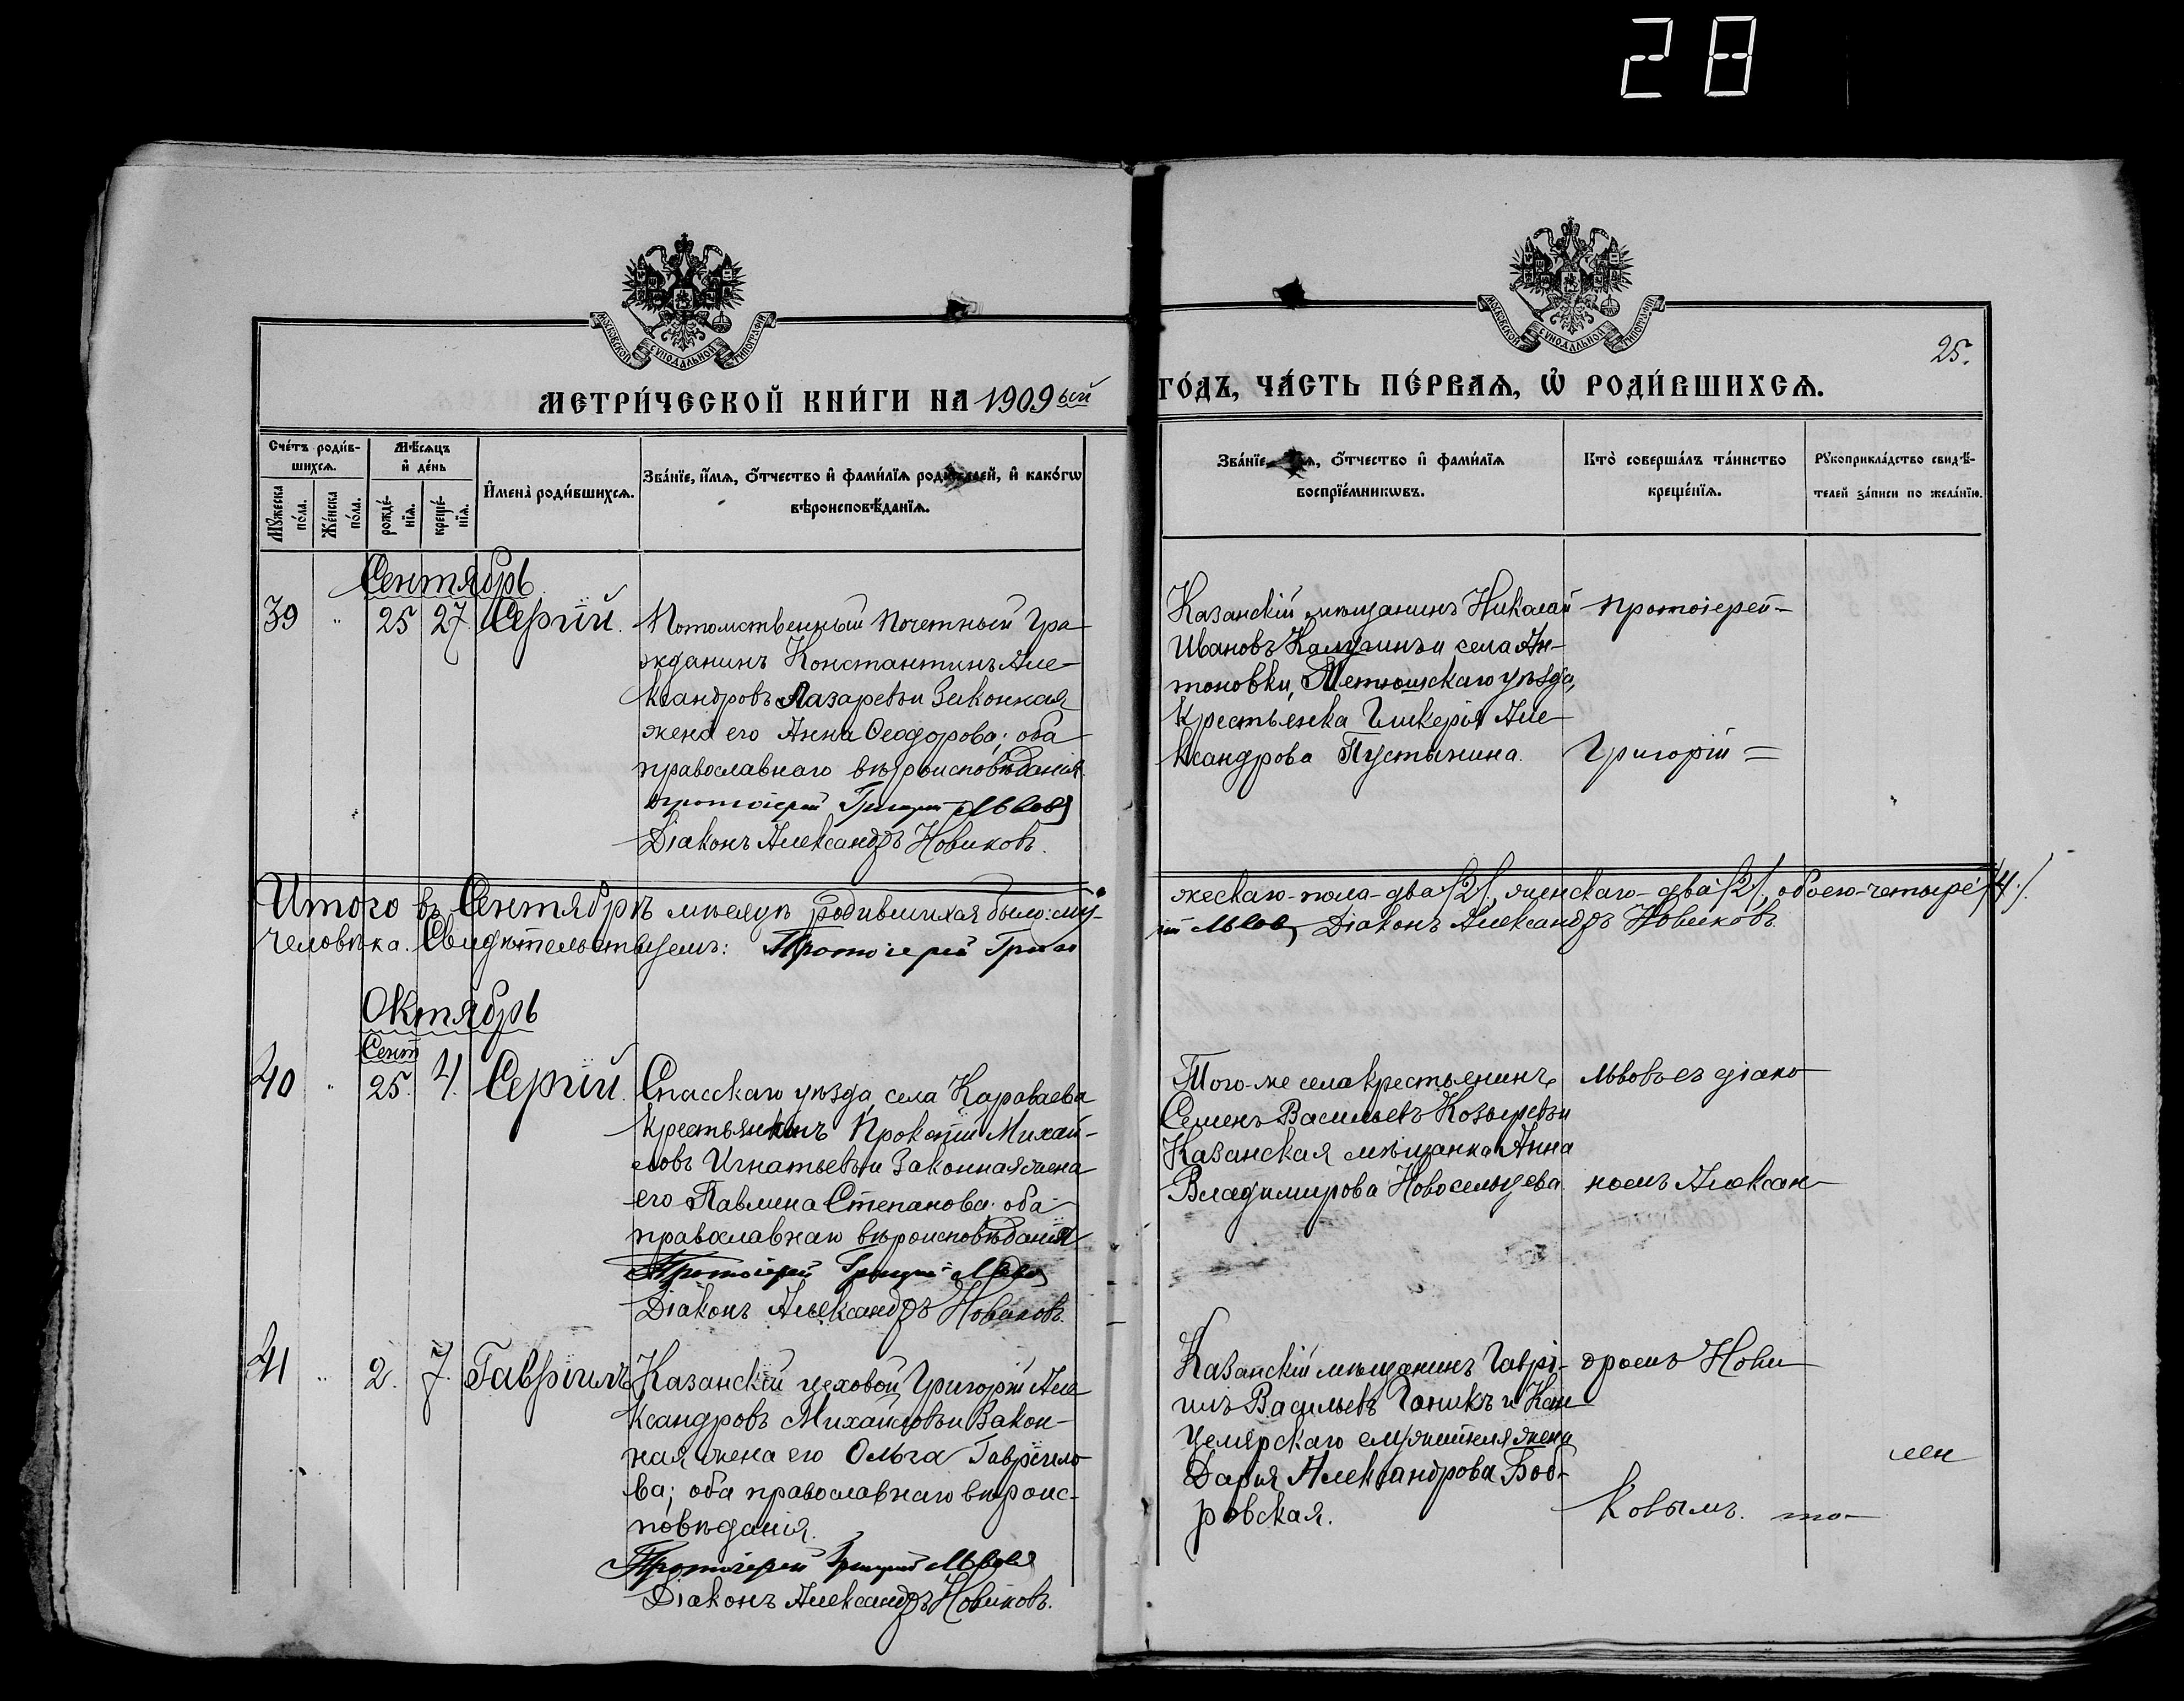 28
МОСКОВСКОЙ СѴНОДАЛЬНОЙ ТИПОГРАФІИ
МОСКОВСКОЙ СѴНОДАЛЬНОЙ ТИПОГРАФІИ
25.
МЕТРИ́ЧЕСКОЙ КНИ́ГИ НА 1909ый
ГО́ДЪ, ЧА́СТЬ ПЕ́РВАѦ, Ѽ РОДИ́ВШИХСѦ.
Сче́тъ роди́в-
шихсѧ.
Мꙋ́жеска по́ла.
Же́нска по́ла.
Мѣ́сѧцъ
и҆ де́нь
рожде́-
нїѧ.
креще́-
нїѧ.
И҆мена̀ роди́вшихсѧ.
Зва́нїе, и҆́мѧ, ѻ҆́тчество и҆ фами́лїѧ роди́телей, и҆ како́гѡ
вѣроисповѣ́данїѧ.
Зва́нїе, и҆́мѧ, ѻ҆́тчество и҆ фами́лїѧ
воспрїе́мникѡвъ.
Кто̀ соверша́лъ та́инство
креще́нїѧ.
Рꙋкоприкла́дство свидѣ́-
телей за́писи по жела́нїю.
Сентябрь
39 " 25 27. Сергій.
Потомственный Почетный Гра-
жданинъ Константинъ Але-
ксандровъ Лазаревъ и законная
жена его Анна Ѳеодорова; оба
православнаго вѣроисповѣданія.
Протоіерей Григорій Львовъ
Діаконъ Александръ Новиковъ.
Казанскій мѣщанинъ Николай
Ивановъ Калугинъ и села Ан-
тоновки, Тетюшскаго уѣзда,
крестьянка Гликерія Але-
ксандрова Пустынина.
Протоіерей-
Григорій =
Итого въ Сентябрѣ мѣсяцѣ родившихся было: му-
жескаго-пола-два /2/, женскаго-два /2/, обоего-четыре /4./
человѣка. Свидѣтельствуемъ: Протоіерей Григо
ій Львовъ Діаконъ Александръ Новиковъ.
Октябрь
Сент
40 " 25. 4. Сергій.
Спасскаго уѣзда, села Караваева
крестьянинъ Прокопій Михай-
ловъ Игнатьевъ и законная жена
его Павлина Степанова; оба
православнаго вѣроисповѣданія
Протоіерей Григорій Львовъ
Діаконъ Александръ Новиковъ.
Того-же села крестьянинъ
Семенъ Васильевъ Козыревъ и
Казанская мѣщанка Анна
Владимирова Новосельцева.
Львовъ съ діако-
номъ Алексан-
41 " 2. 7. Гавріилъ
Казанскій цеховой Григорій Але-
ксандровъ Михайловъ и Закон-
ная жена его Ольга Гавріило-
ва; оба православнаго вѣроис-
повѣданія.
Протоіерей Григорій Львовъ
Діаконъ Александръ Новиковъ.
Казанскій мѣщанинъ Гаврі-
илъ Васильевъ и Кан-
целярскаго служителя жена
Дарія Александрова Боб-
ровская.
дромъ Нови-
ковымъ.